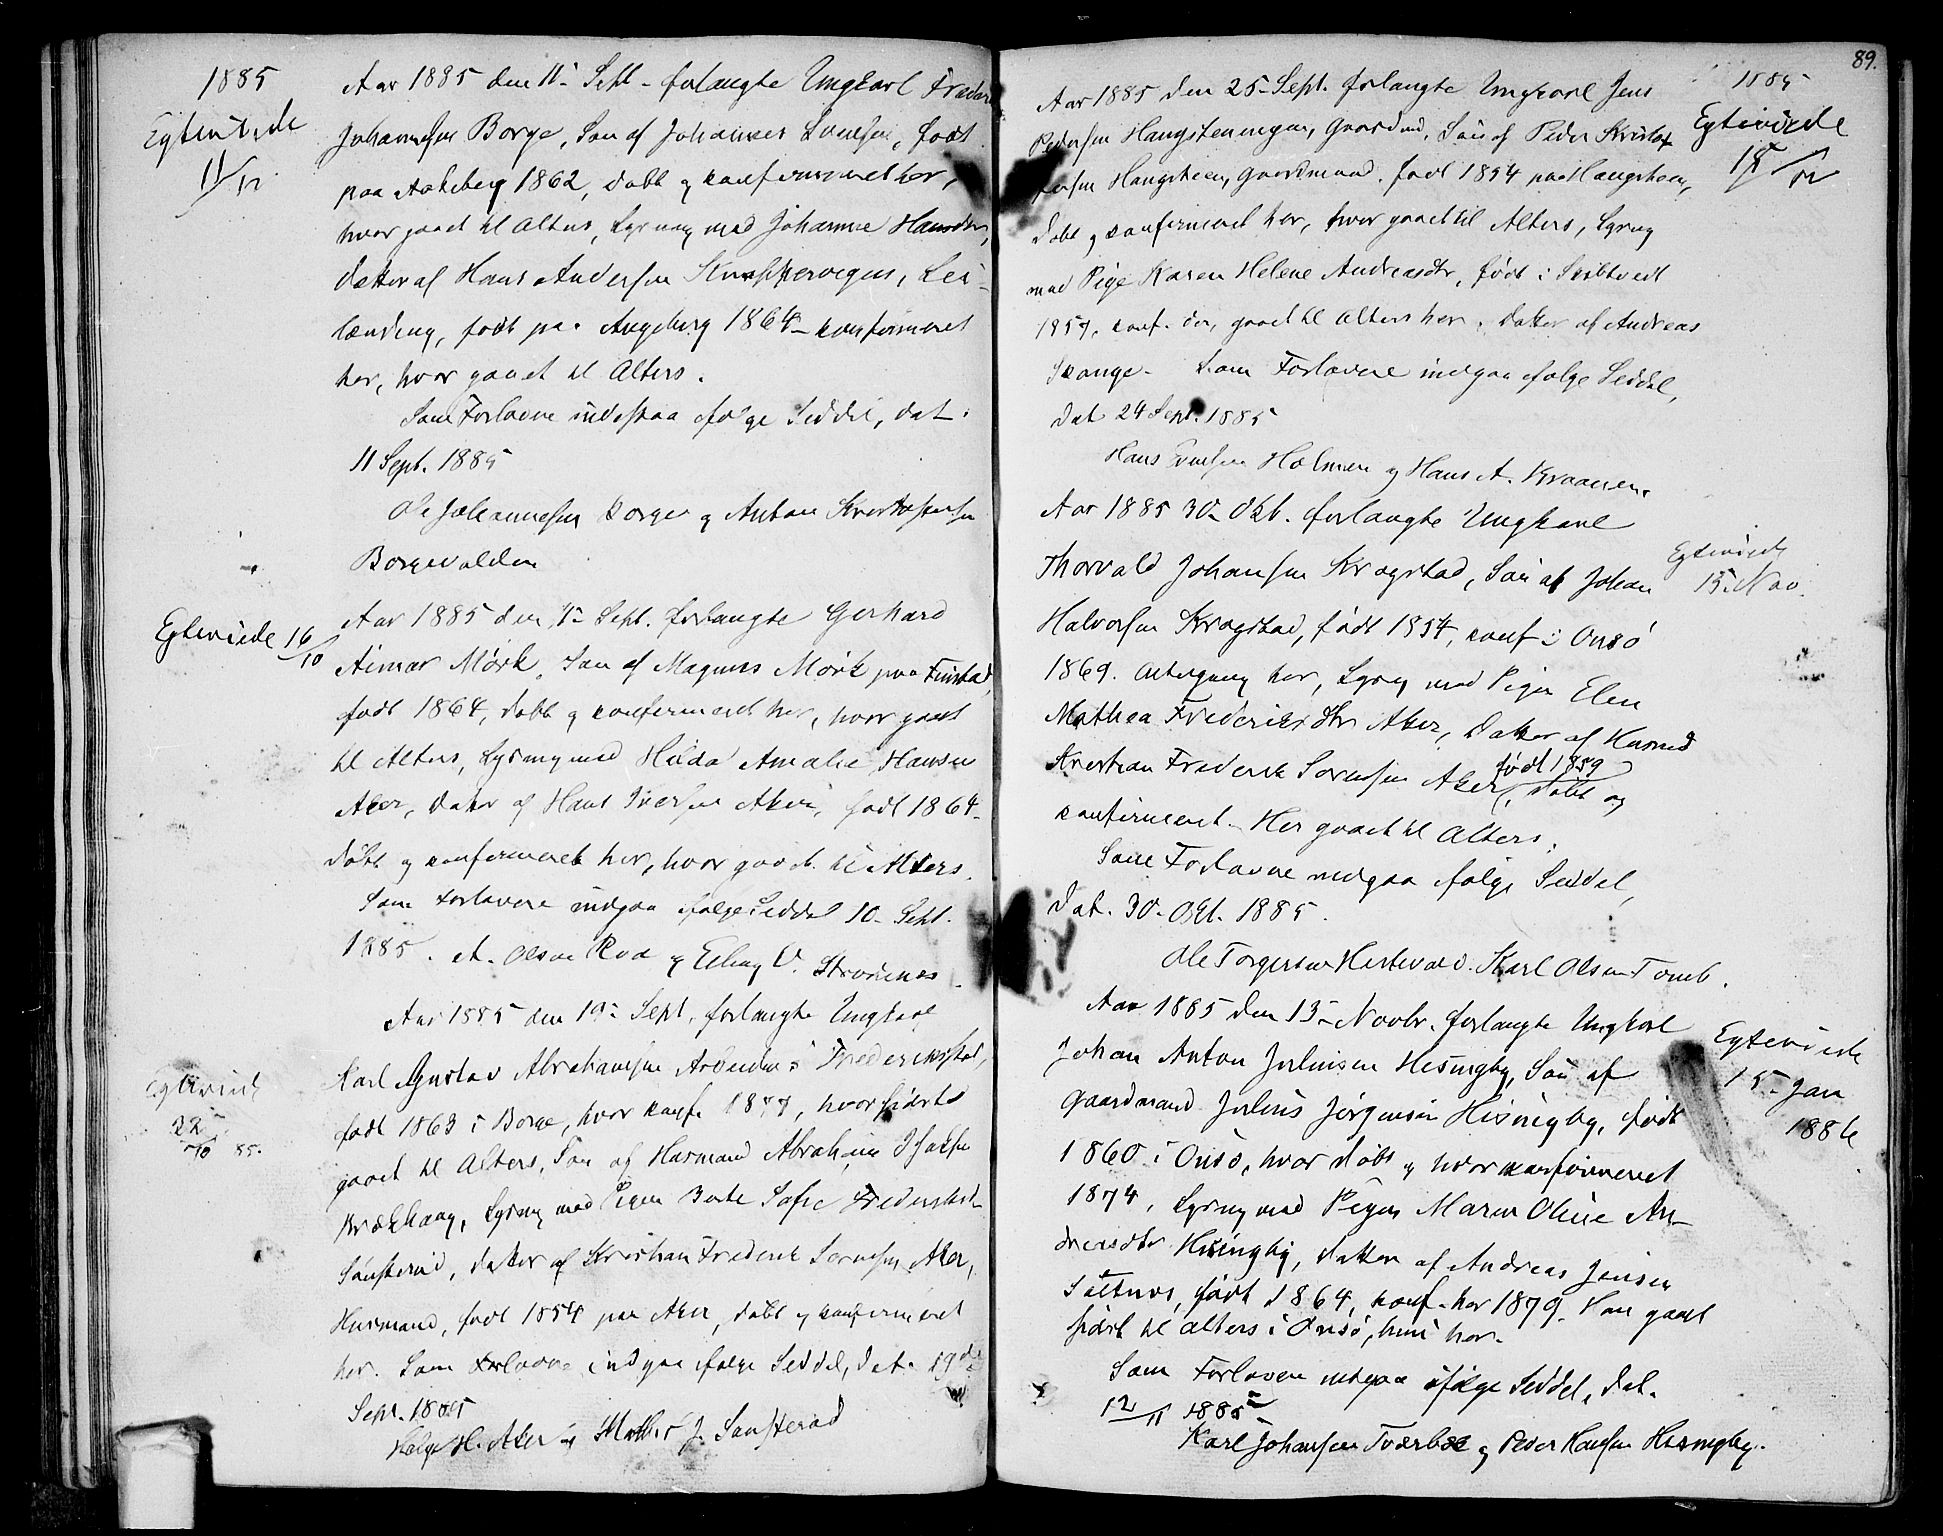 1885
Egteviede
11/12
Aar 1885 den 11- Sept - forlangte Ungkarl Frederik
Johannesen Borge, Søn af Johannes , født
paa 1862, døbt og konfirmeret her,
hvor gaaet til Alters, Lysning med Johanne Hansdtr,
Datter af Hans Andersen , Lei-
lænding, født paa Augeberg 1864 - konfirmeret
her, hvor gaaet til Alters.
Som Forlovere indestaa ifølge Seddel, dat.
11 Sept. 1885
Ole Johannesen Borge og Anton Kristofersen
Borgevolden
Egteviede 16/10
Aar 1885 den Sept. forlangte Gerhard
Mørk, Søn af Magnus Mørk paa Finstad,
født 1864, døbt og konfirmeret her, hvor gaaet
til Alters, Lysning med Hilda Amalie Hansen
Aker, Datter af Hans Iversen Aker, født 1864-
døbt og konfirmeret her, hvor gaaet til Alters.
Som Forlovere indgaa ifølge Seddel 10- Sept.
1885. A. Olsen Rød og
Aar 1885 den 19- Sept. forlangte Ungkarl
Egteviet
22/10 85.
Karl Gustav Abrahamsen Arbeider i Frederikstad,
født 1863 i Borge, hvor konf. 1877, hvor sidst
gaaet til Alters, Søn af Husmand Abraham Isaksen
, Lysning med Pigen Berte Sofie Frederiksdtr
, Datter af Kristian Frederik Sørensen Aker,
Husmand, født 1854 paa Aker, døbt og konfirmeret
her. Som Forlovere indgaa ifølge Seddel, dat. 19de
Sept. 1885
Helge H. Aker og J.
89.
1885
Egteviede
Aar 1885 den 25- Sept. forlangte Ungkarl Jens
Pedersen , Gaardmd, Søn af Peder Kristof-
fersen Haugsteen, Gaardmand, født 1854 paa Haugsteen,
døbt og konfirmeret her, hvor gaaet til Alters, Lysning
med Pige Karen Helene Andreasdtr, født i Skibtvedt
1857, konf. der, gaaet til Alters her. Datter af Andreas
Som Forlovere indgaa ifølge Seddel,
dat 24 Sept. 1885
Hans Holmen og Hans A.
Aar 1885 30- Okt. forlangte Ungkarl
Egteviede
15. Nov.
Thorvald Johansen Krogstad, Søn af Johan
Halvorsen Krogstad, født 1854, konf i Onsø
1869. her, Lysning med Pigen Elen
Mathea Frederiksdtr Aker, Datter af Husmd
Kristian Frederik Sørensen Aker, født 1859, døbt og
konfirmeret - Her gaaet til Alters.
Som Forlovere indgaa ifølge Seddel,
dat. 30. Okt. 1885.
Ole Torgersen . Karl Olsen Tomb.
Aar 1885 den 13- Novbr. forlangte Ungkarl
Egteviede
15- Jan
1886
Johan Anton Juliusen Hisingby, Søn af
Gaardmand Julius Jørgensen Hisingby, født
1860 i Onsø, hvor døbt og hvor konfirmeret
1874, Lysning med Pigen Maren Oline An-
dreasdtr Hisingby, Datter af Andreas Jensen
, født 1864, konf. her 1879. Han gaaet
sidst til Alters i Onsø, hun her.
Som Forlovere indgaa ifølge Seddel, dat.
12/11 1885
Karl Johansen og Peder Hansen Hisingby.